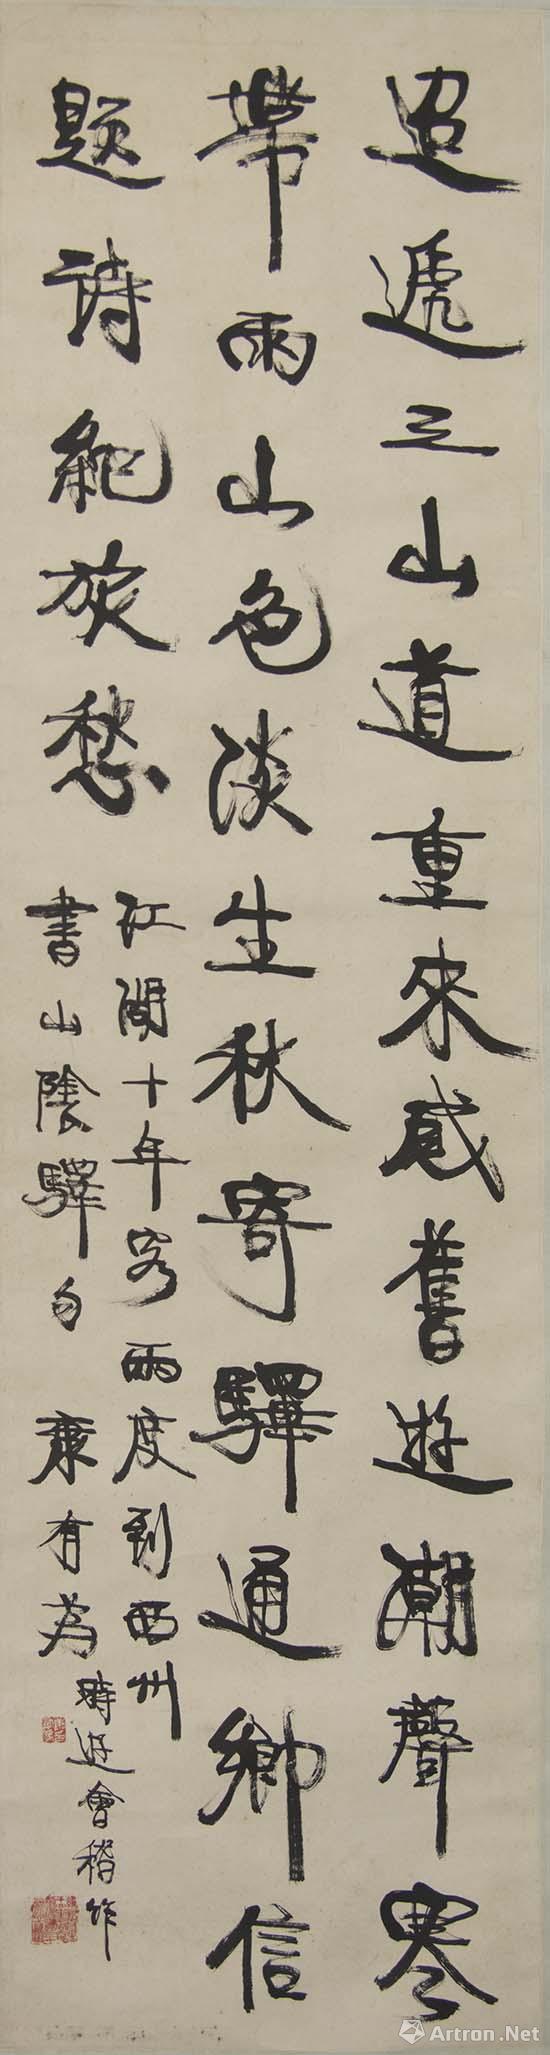 迢遞三山道重來感舊遊潮聲寒
帶雨山色淡生秋寄驛通鄉信
題詩紀旅愁
江湖十年客兩度到西州
書山陰驛句 康有為
時遊會稽作
Artron.Net